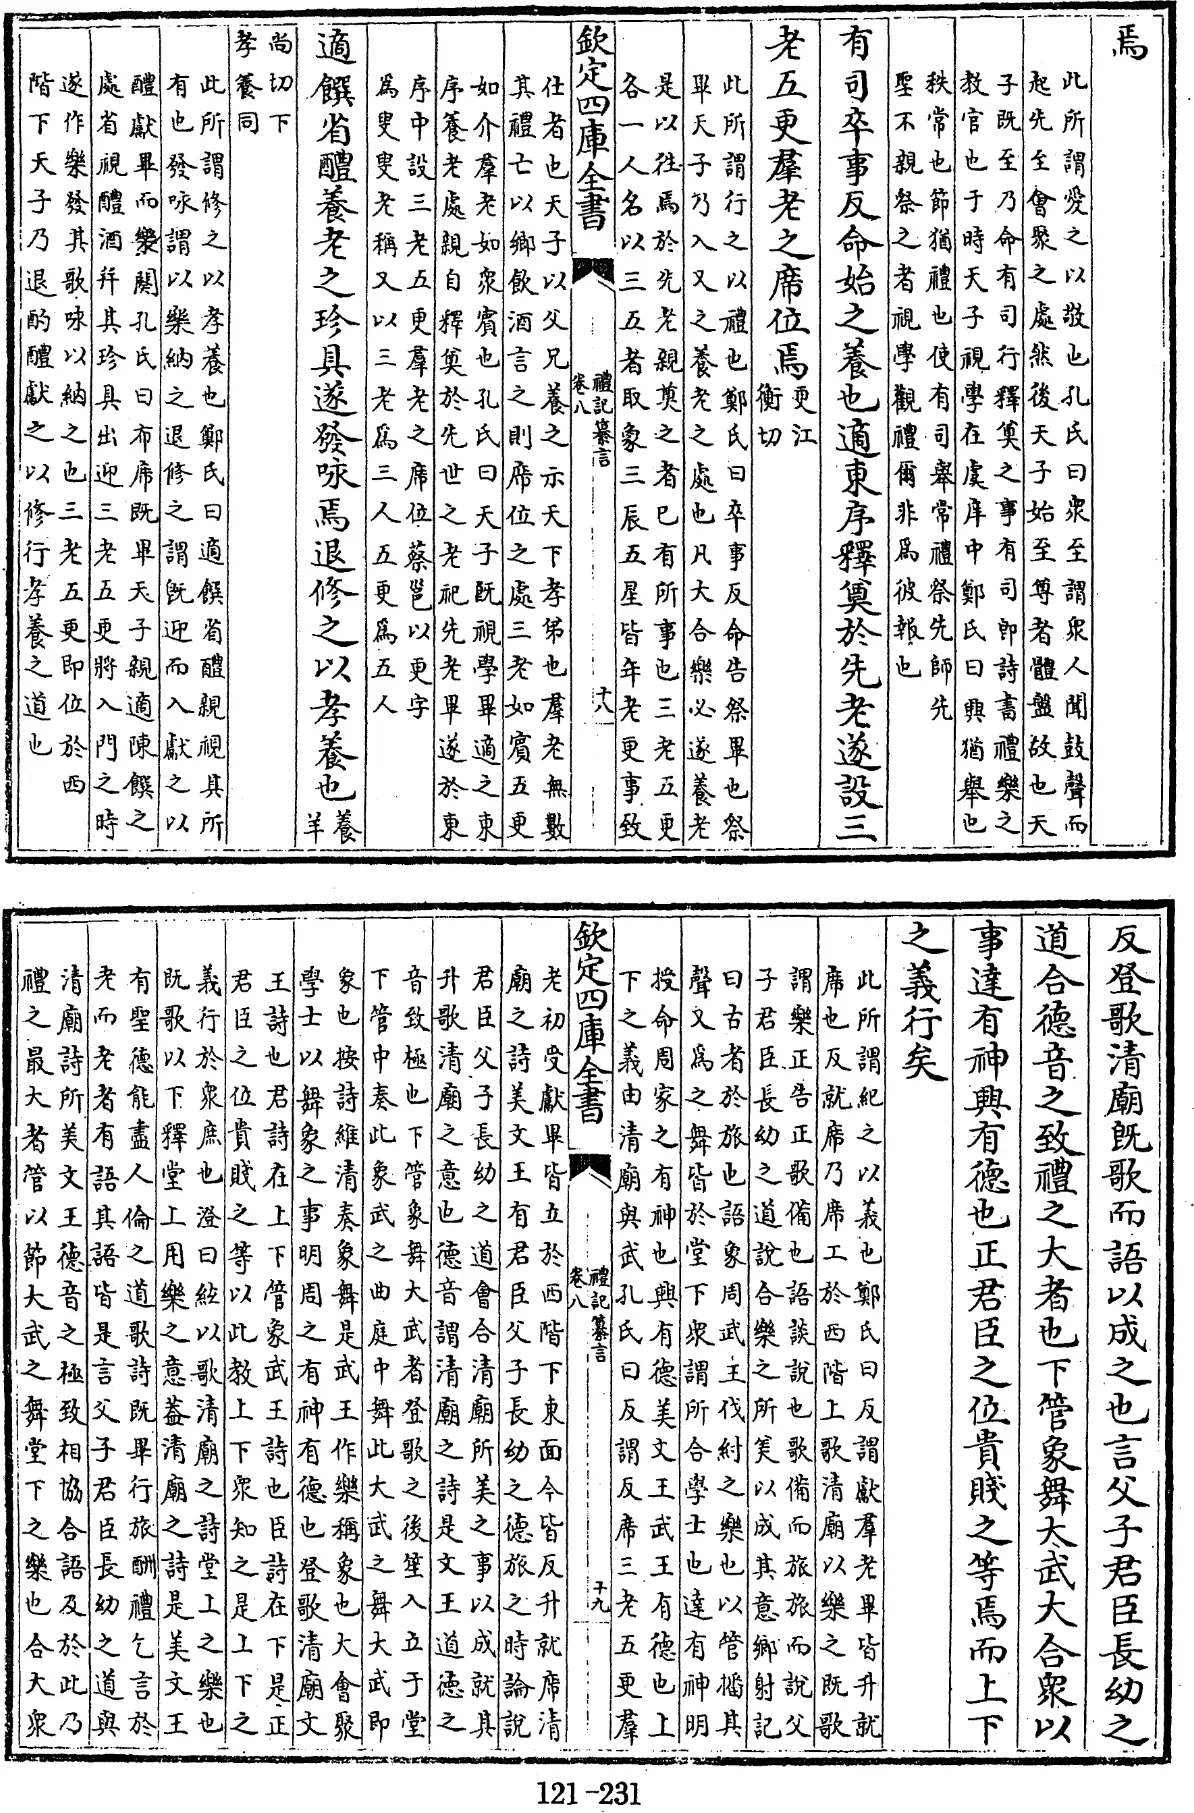 焉
此所謂愛之以敬也孔氏曰衆至謂衆人聞鼓聲而
起先至會聚之處然後天子始至尊者體盤故也天
子既至乃命有司行釋奠之事有司即詩書禮樂之
教官也于時天子視學在虞庠中鄭氏曰興猶舉也
秩常也節猶禮也使有司舉常禮祭先師先
聖不親祭之者視學觀禮爾非爲彼報也
有司卒事反命始之養也適東序釋奠於先老遂設三
老五更羣老之席位焉更江
衡切
此所謂行之以禮也鄭氏曰卒事反命告祭畢也祭
畢天子乃入又之養老之處也凡大合樂必遂養老
是以往焉於先老親奠之者已有所事也三老五更
各一人名以三五者取象三辰五星皆年老更事致
欽定四庫全書
禮記纂言
卷八
十八
仕者也天子以父兄養之示天下孝弟也羣老無數
其禮亡以鄉飲酒言之則席位之處三老如賓五更
如介羣老如衆賓也孔氏曰天子既視學畢適之東
序養老處親自釋奠於先世之老祀先老畢遂於東
序中設三老五更羣老之席位蔡邕以更字
爲叟叟老稱又以三老爲三人五更爲五人
適饌省醴養老之珍具遂發咏焉退修之以孝養也養
羊
尚切下
孝養同
此所謂修之以孝養也鄭氏曰適饌省醴親視其所
有也發咏謂以樂納之退修之謂既迎而入獻之以
醴獻畢而樂闋孔氏曰布席既畢天子親適陳饌之
處省視醴酒幷其珍具出迎三老五更將入門之時
遂作樂發其歌咏以納之也三老五更即位於西
階下天子乃退酌醴獻之以修行孝養之道也
反登歌清廟既歌而語以成之也言父子君臣長幼之
道合德音之致禮之大者也下管象舞大武大合衆以
事達有神興有德也正君臣之位貴賤之等焉而上下
之義行矣
此所謂紀之以義也鄭氏曰反謂獻羣老畢皆升就
席也反就席乃席工於西階上歌清廟以樂之既歌
謂樂正告正歌備也語談說也歌備而旅旅而說父
子君臣長幼之道說合樂之所美以成其意鄉射記
曰古者於旅也語象周武王伐紂之樂也以管播其
聲又爲之舞皆於堂下衆謂所合學士也達有神明
授命周家之有神也興有德美文王武王有德也上
下之義由清廟與武孔氏曰反謂反席三老五更羣
欽定四庫全書
禮記纂言
卷八
十九
老初受獻畢皆立於西階下東面今皆反升就席清
廟之詩美文王有君臣父子長幼之德旅之時論說
君臣父子長幼之道會合清廟所美之事以成就其
升歌清廟之意也德音謂清廟之詩是文王道德之
音致極也下管象舞大武者登歌之後笙入立于堂
下管中奏此象武之曲庭中舞此大武之舞大武即
象也按詩維清奏象舞是武王作樂稱象也大會聚
學士以舞象之事明周之有神有德也登歌清廟文
王詩也君詩在上下管象武王詩也臣詩在下是正
君臣之位貴賤之等以此教上下衆知之是上下之
義行於衆庶也澄曰絃以歌清廟之詩堂上之樂也
既歌以下釋堂上用樂之意葢清廟之詩是美文王
有聖德能盡人倫之道歌詩既畢行旅酬禮乞言於
老而老者有語其語皆是言父子君臣長幼之道與
清廟詩所美文王德音之極致相協合語及於此乃
禮之最大者管以節大武之舞堂下之樂也合大衆
121-231